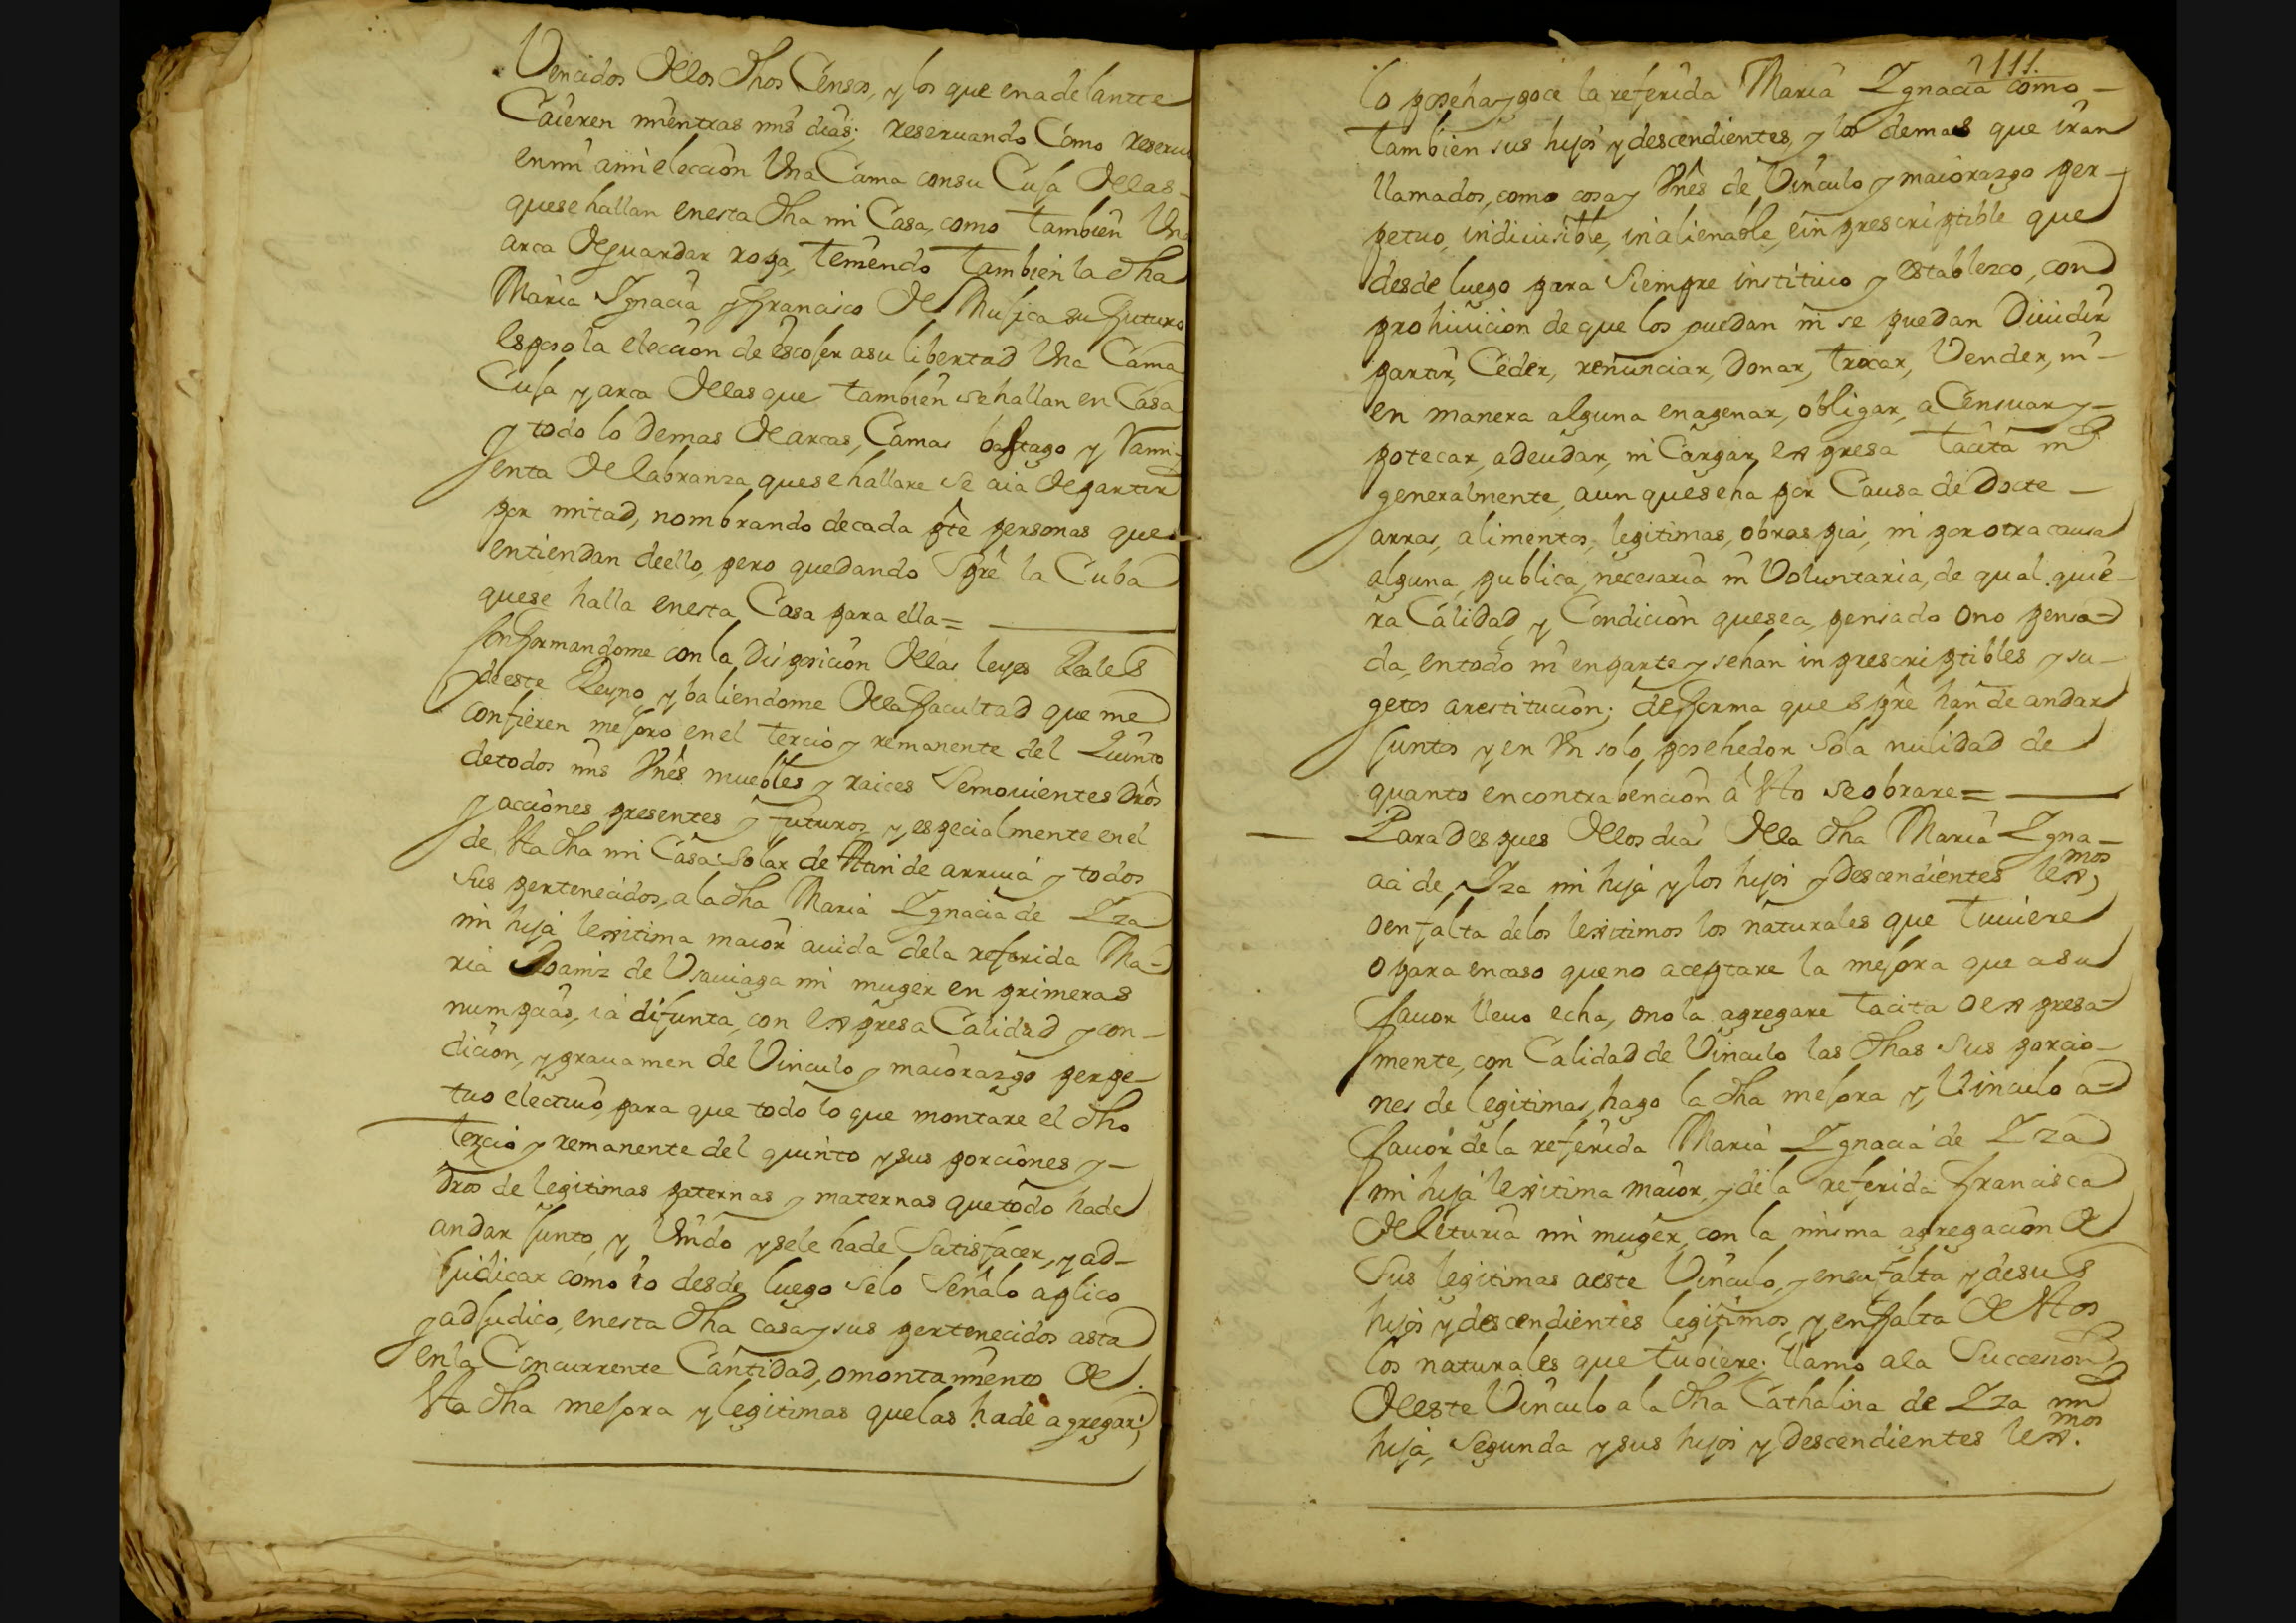 Vencidos dellos dhos Censos, y los que en adelantte
Caieren mientras mis dias; reservando Como reservo
en mi a mi eleccion Una Cama con su Cuja dellas
que se hallan en esta dha mi Casa, como tambien Una
arca de guardar ropa, teniendo tambien la dha
Maria Ignacia y francisco de Mujica su futuro
esposo la eleccion de escojer a su libertad Una Cama
Cuja y arca dellas que tambien se hallan en Casa
y todo lo demas de arcas, Camas bastago y
enta de labranza que se hallare se aia de partir
por mitad, nombrando de cada pte personas que
entiendan de ello, pero quedando Spre la Cuba
que se halla en esta Casa para ella =
Conformandome con la Disposicion dellas leyes Reales
de este Reyno y baliendome della facultad que me
confieren mejoro en el tercio y remanente del Quinto
de todos mis Vnes muebles y raices Semovientes dros
y acciones presentes y futuros y especialmente en el
de Sta dha mi Casa Solar de de arriua y todos
sus pertenecidos, a la dha Maria Ignacia de Iza
mi hija lexitima maior auida de la referida Ma-
ria de Usauiaga mi muger en primeras
numpcias, ia difunta, con expresa Calidad y con-
dicion, y grauamen de Vinculo y maiorazgo perpe-
tuo electiuo, para que todo lo que montare el dho
tercio y remanente del quinto y sus porciones y
dros de legitimas paternas y maternas que todo ha de
andar junto y Unido y se le ha de Satisfacer, y ad-
judicar como io desde luego se lo Señalo aplico
y adjudico, en esta dha casa y sus pertenecidos asta
en la Concurrente Cantidad, o montamiento de
Sta dha mejora y legitimas que las ha de agregar;
2111.
lo poseha y goce la referida Maria Ignacia como
tambien sus hijos y descendientes, y los demas que iran
llamados, como cosa y Vnes de Vinculo y maiorazgo per-
petuo, indiuisible, inalienable, e inprescriptible que
desde luego para Siempre instituio y establezco, con
prohiuicion de que los puedan ni se puedan Diuidir
partir, Ceder, renunciar, donar, trocar, Vender, ni
en manera alguna enagenar, obligar, aCensuar y-
potecar, adeudar, ni Cargar, expresa tacita ni
generalmente, aun que seha por Causa de Docte
arras, alimentos, legitimas, obras pias, ni por otra causa
alguna, publica, necesaria ni Voluntaria, de qual quie-
ra Calidad y Condicion que sea, pensado o no pensa-
da, en todo ni en parte y sehan inprescriptibles y su-
getos a restitucion; de forma que Spre han de andar
juntos y en Vn solo posehedor Sola nulidad de
quanto en contrabencion a Sto se obrare =
Para Despues dellos dias della dha Maria Igna-
cia de Iza mi hija y los hijos y Descendientes lexmos,
o en falta de los lexitimos los naturales que tuuiere
o para en caso que no aceptare la mejora que a su
fauor lleuo echa, o no la agregare tacita o expresa-
mente, con Calidad de Vinculo las dhas sus porcio-
nes de legitimas, hago la dha mejora y Vinculo a
fauor de la referida Maria Ignacia de Iza
mi hija lexitima maior, y de la referida francisca
de leturia mi muger, con la misma agregacion de
sus legitimas a este Vinculo, y en su falta y de sus
hijos y descendientes legitimos, y en falta de Stos
los naturales que tubiere; llamo a la Succesion
de este Vinculo a la dha Cathalina de Iza mi
hija, segunda y sus hijos y Descendientes lexmos.